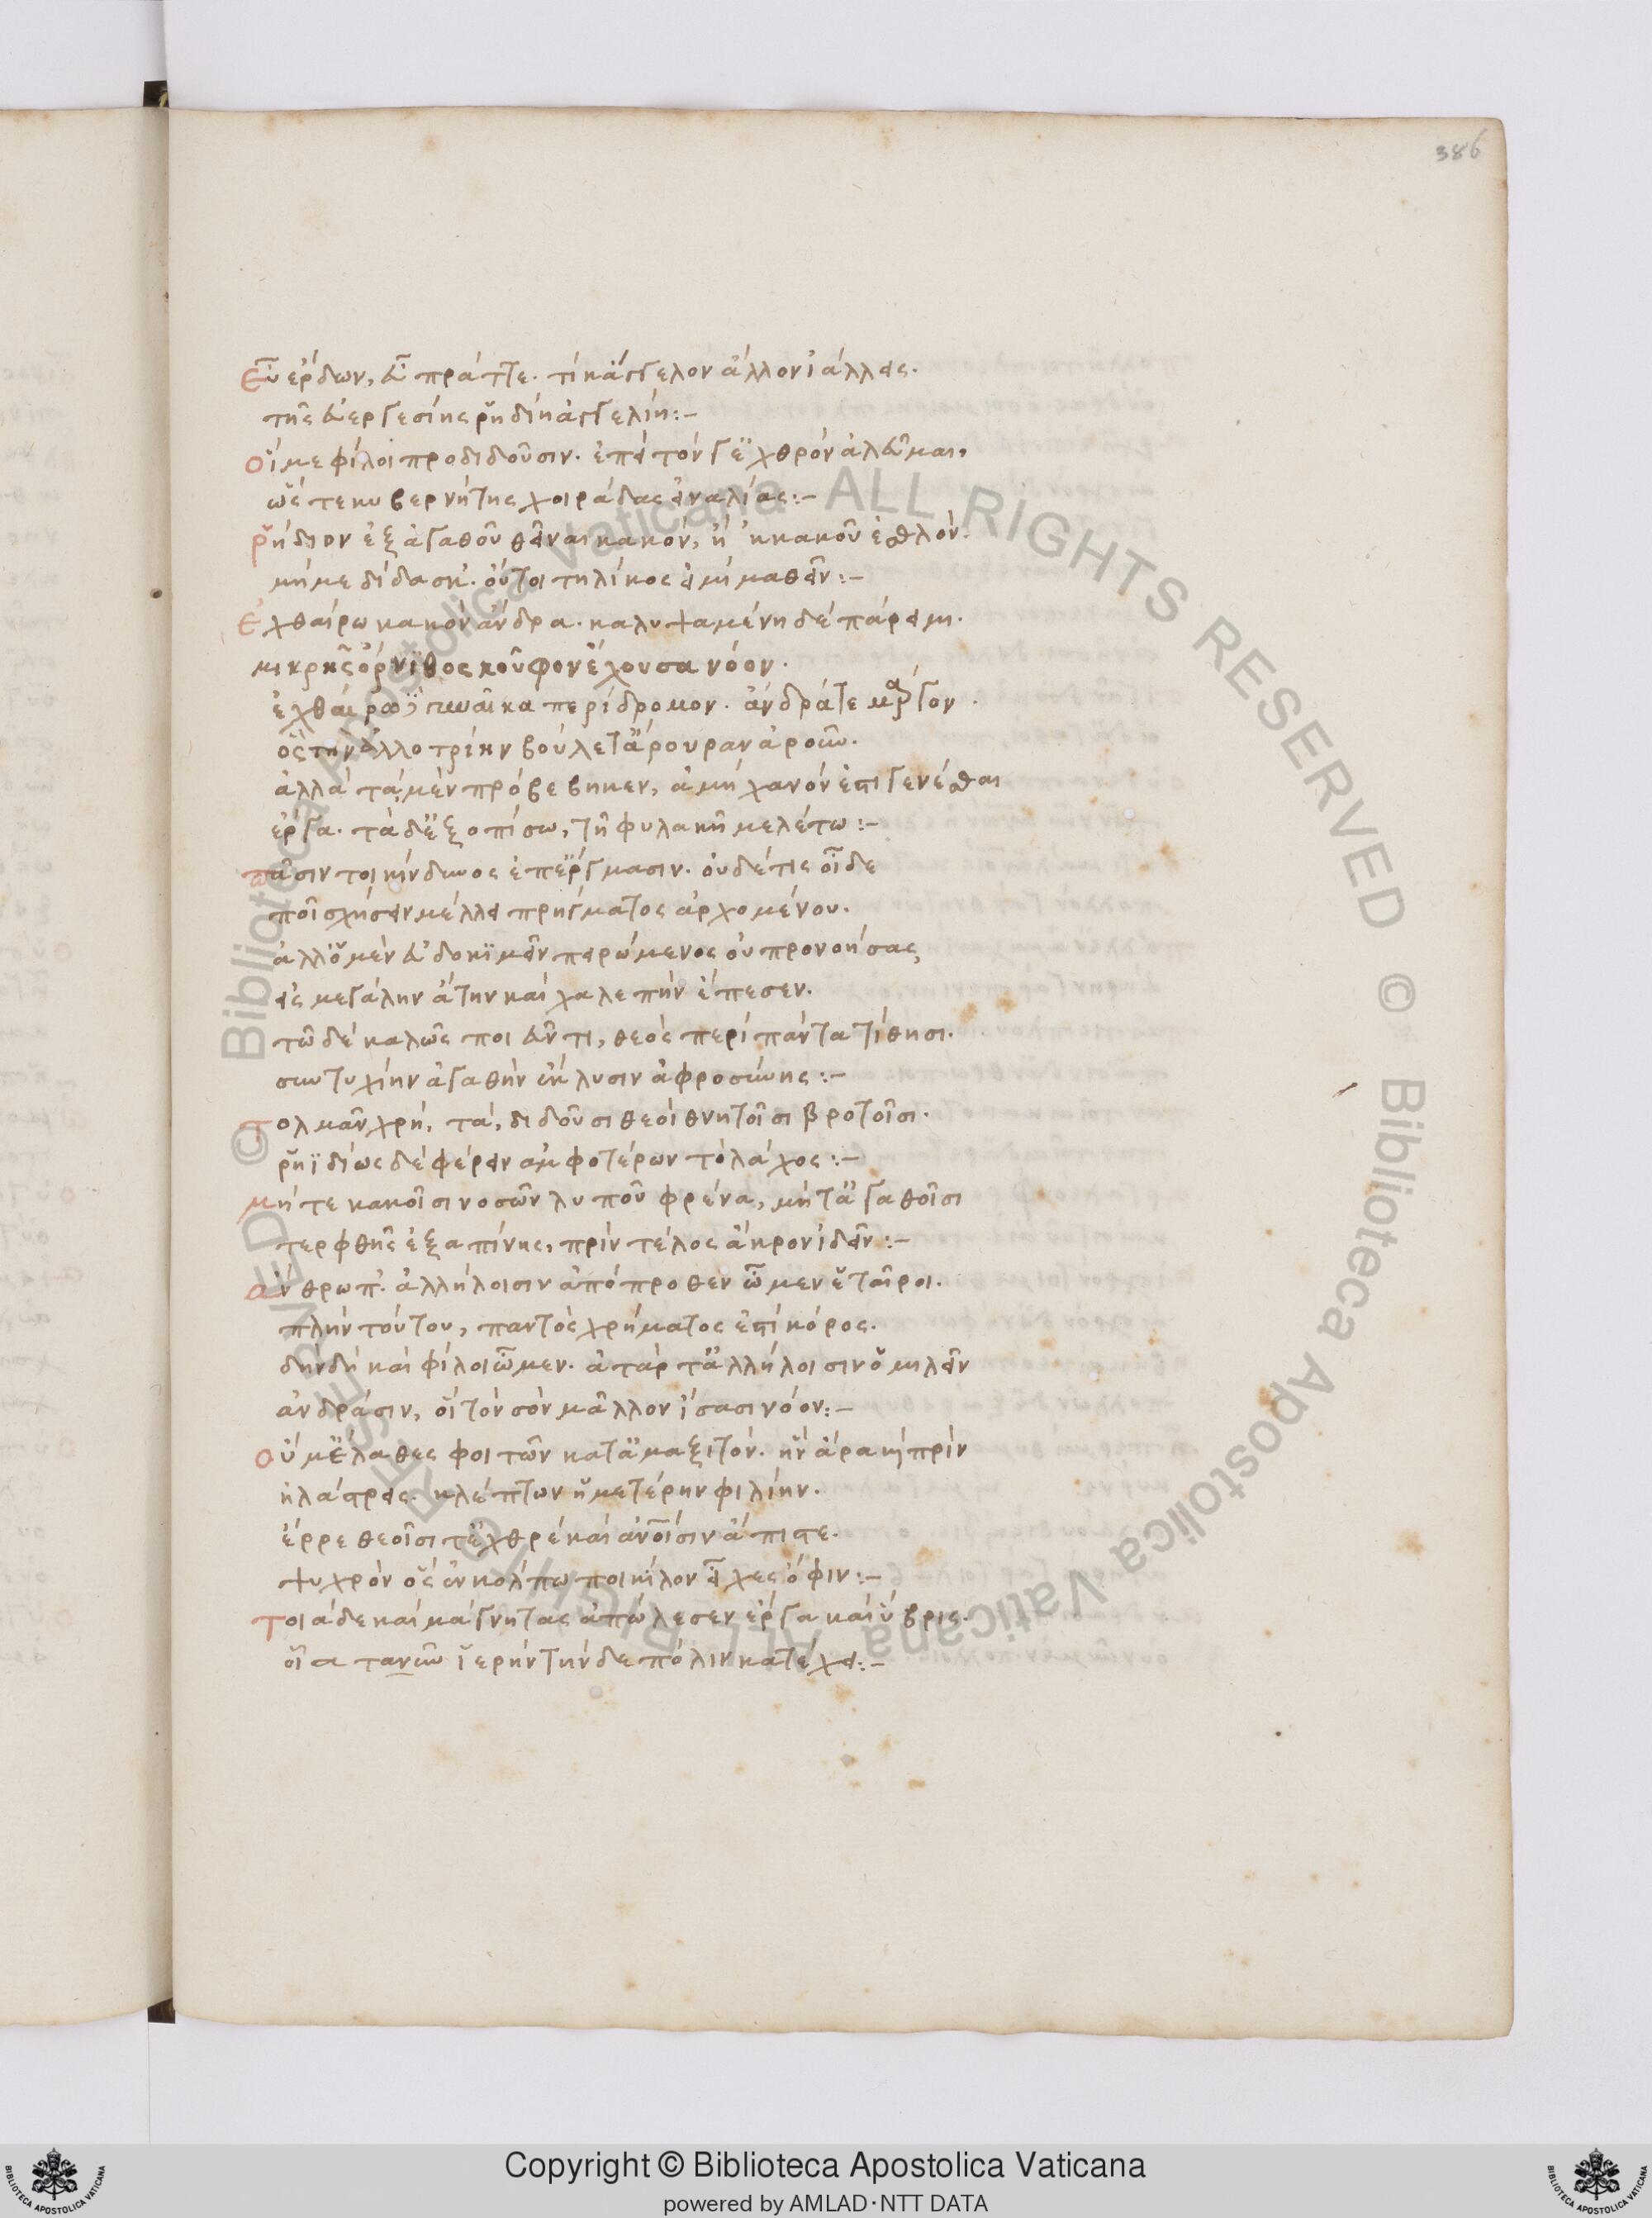 386
Εὖ ἔρδων, εὖ πράττε. τί κἄγγελον ἄλλον ἰάλλεις.
τῆς εὐεργεσίης ῥηϊδίη ἀγγελίη:–
Οἵ με φίλοι προδιδοῦσιν. ἐπεὶ τόν γ' ἐχθρὸν ἀλεῦμαι,
ὥστε κυβερνήτης χοιράδας εἰναλίας:–
Ῥήδιον ἐξ ἀγαθοῦ θεῖναι κακόν, ἢ 'κ κακοῦ ἐσθλόν.
μή με δίδασκ'. οὔτοι τηλίκος εἰμὶ μαθεῖν:–
Ἐχθαίρω κακὸν ἄνδρα. καλυψαμένη δὲ πάρειμι.
μικρῆς ὄρνιθος κοῦφον ἔχουσα νόον.
ἐχθαίρω γυναῖκα περίδρομον. ἄνδρά τε μάργον.
ὃς τὴν ἀλλοτρίην βούλετ' ἄρουραν ἀροῦν.
ἀλλὰ τὰ μὲν προβέβηκεν, ἀμήχανόν ἐστι γενέσθαι
ἔργα. τὰ δ' ἐξοπίσω, τῇ φυλακῇ μελέτω:–
πᾶσιν τοι κίνδυνος ἐπ' ἔργμασιν. οὐδέ τις οἶδε
ποῖ σχήσειν μέλλει πρήγματος ἀρχομένου.
ἀλλ' ὁ μὲν εὐδοκιμεῖν πειρώμενος οὐ προνοήσας
εἰς μεγάλην ἄτην καὶ χαλεπὴν ἔπεσεν.
τῷ δὲ καλῶς ποιεῦντι, θεὸς περὶ πάντα τίθησι.
συντυχίην ἀγαθὴν ἔκλυσιν ἀφροσύνης:–
Τολμᾶν χρή, τά, διδοῦσι θεοὶ θνητοῖσι βροτοῖσι.
ῥηϊδίως δὲ φέρειν ἀμφοτέρων τὸ λάχος:–
μήτε κακοῖσι νοσῶν λυποῦ φρένα, μήτ' ἀγαθοῖσι
τερφθῇς ἐξαπίνης, πρὶν τέλος ἄκρον ἰδεῖν:–
Ἄνθρωπ'. ἀλλήλοισιν ἀπόπροθεν ὦμεν ἑταῖροι.
πλὴν τούτου, παντὸς χρήματός ἐστι κόρος.
δὴν δὴ καὶ φίλοι ὦμεν. ἀτάρ τ' ἄλλήλοισιν ὁμιλεῖν
ἀνδράσιν, οἳ τὸν σὸν μᾶλλον ἴσασι νόον:–
Οὔ μ' ἔλαθες φοιτῶν κατ' ἀμαξιτόν. ἣν ἄρα καὶ πρὶν
ἠλάστρεις. κλέπτων ἡμετέρην φιλίην.
ἔρρε θεοῖσί τ' ἐχθρὲ καὶ ἀνοῖσιν ἄπιστε.
ψυχρὸν ὃς ἐν κόλπω ποικίλον εἶχες ὄφιν:–
Τοιάδε καὶ μάγνητας ἀπώλεσεν ἔργα καὶ ὕβρις.
οἷα τανῦν ἱερὴν τήνδε πόλιν κατέχει:–
© Biblioteca Apostolica Vaticana ALL RIGHTS RESERVED © Biblioteca Apostolica Vaticana ALL RIGHTS RESERVED
Copyright © Biblioteca Apostolica Vaticana
powered by AMLAD·NTT DATA
BIBLIOTECA APOSTOLICA VATICANA
BIBLIOTECA APOSTOLICA VATICANA